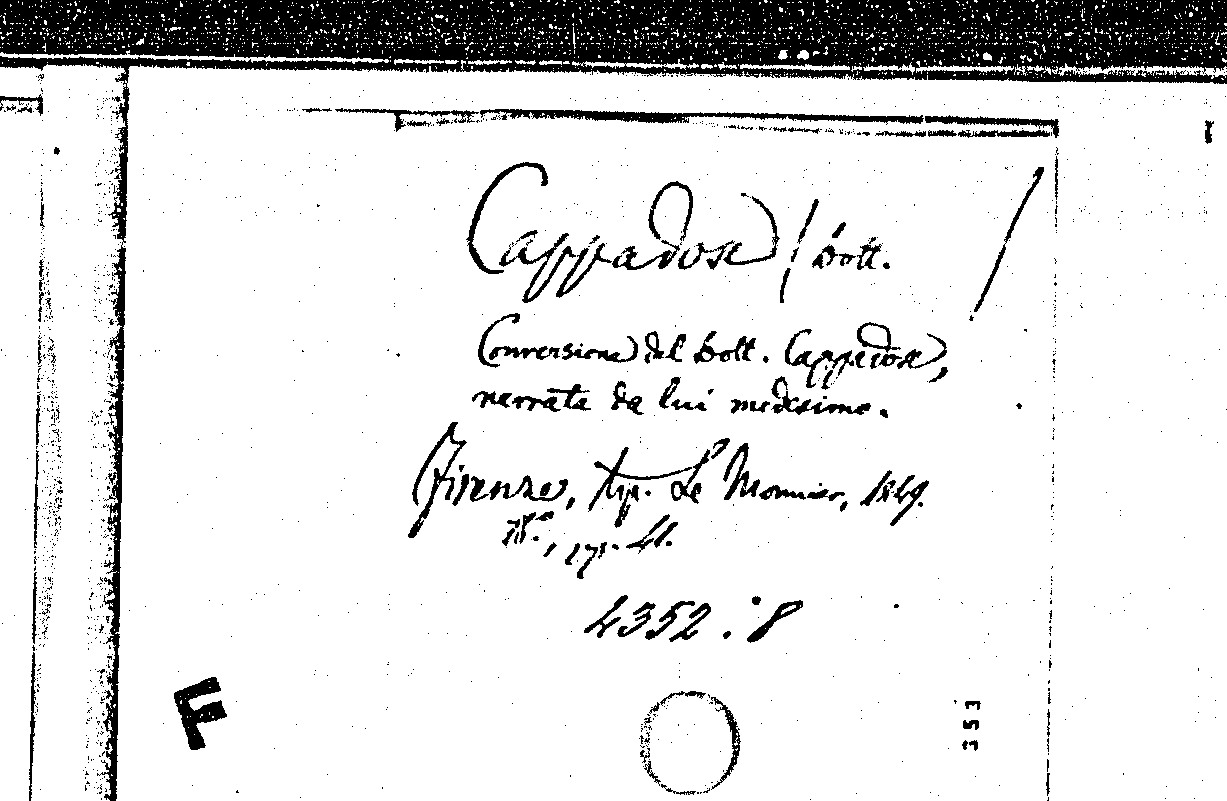 Cappadose / Dott. /
Conversione del Dott. Cappadose,
narrata da lui medesimo.
Firenze, tip. Le Monnier, 1849.
pp. 41.
4352 . 8
F
353